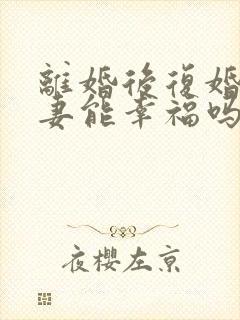 離婚後復婚
妻能幸福吗
夜櫻左京